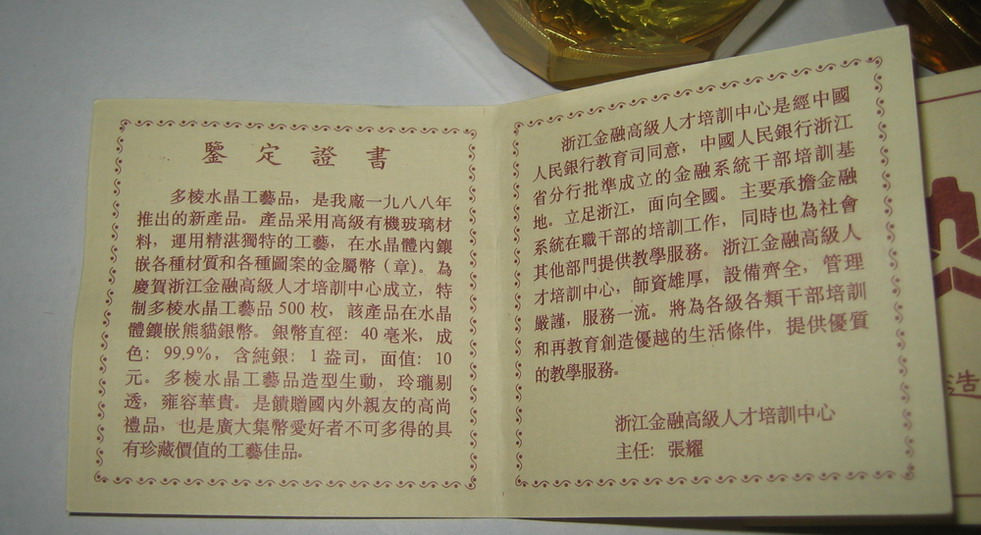 鑒定證書
多棱水晶工藝品，是我廠一九八八年
推出的新產品。產品采用高級有機玻璃材
料，運用精湛獨特的工藝，在水晶體內鑲
嵌各種材質和各種圖案的金屬幣（章）。為
慶賀浙江金融高級人才培訓中心成立，特
制多棱水晶工藝品500枚，該產品在水晶
體鑲嵌熊貓銀幣。銀幣直徑：40毫米，成
色：99.9%，含純銀：1盎司，面值：10
元。多棱水晶工藝品造型生動，玲瓏剔
透，雍容華貴。是饋贈國內外親友的高尚
禮品，也是廣大集幣愛好者不可多得的具
有珍藏價值的工藝佳品。
浙江金融高級人才培訓中心是經中國
人民銀行教育司同意，中國人民銀行浙江
省分行批準成立的金融系統干部培訓基
地。立足浙江，面向全國。主要承擔金融
系統在職干部的培訓工作，同時也為社會
其他部門提供教學服務。浙江金融高級人
才培訓中心，師資雄厚，設備齊全，管理
嚴謹，服務一流。將為各級各類干部培訓
和再教育創造優越的生活條件，提供優質
的教學服務。
浙江金融高級人才培訓中心
主任：張耀
告